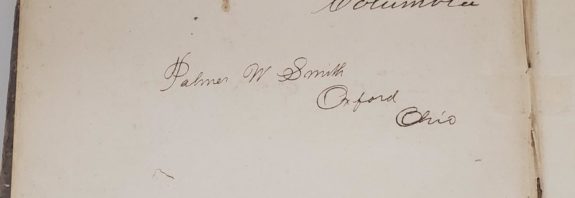 Columbia
Palmer W Smith
Oxford
Ohio